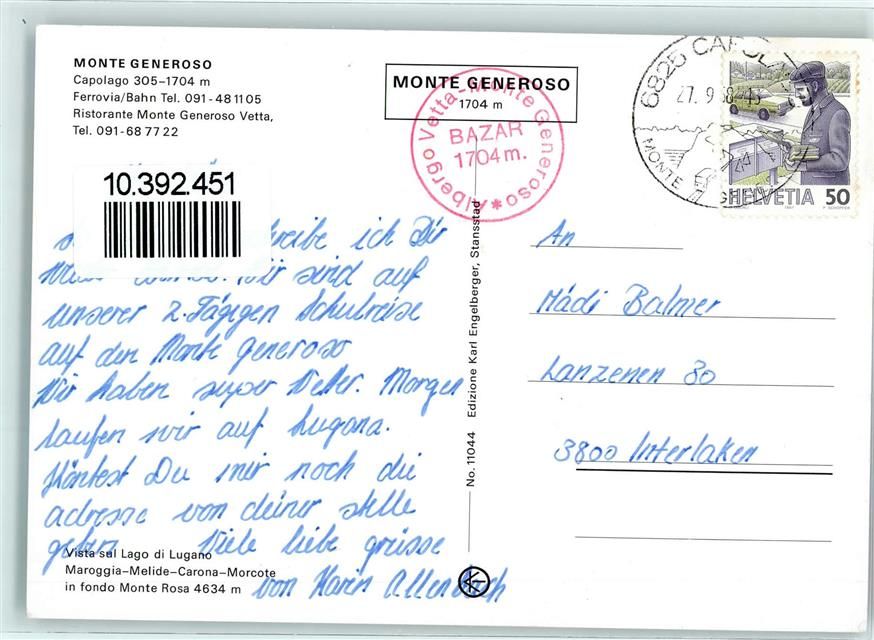 MONTE GENEROSO
Capolago 305–1704 m
Ferrovia/Bahn Tel. 091-481105
Ristorante Monte Generoso Vetta,
Tel. 091-68 77 22
MONTE GENEROSO
1704 m
Albergo Vetta-Monte Generoso
BAZAR
1704 m.
6825 CAPOLA
27. 9
MONTE GENEROSO
HELVETIA 50
10.392.451
schreibe ich Dir
wir sind auf
unserer 2. Tägigen Schulreise
auf den Monte generoso
Wir haben super Wetter. Morgen
laufen wir auf Lugano.
Köntest Du mir noch die
adresse von deiner stelle
geben. Viele liebe grüsse
von Karin
Vista sul Lago di Lugano
Maroggia–Melide–Carona–Morcote
in fondo Monte Rosa 4634 m
No. 11044 Edizione Karl Engelberger, Stansstad
An
Mädi Balmer
Lanzenen 30
3800 Interlaken